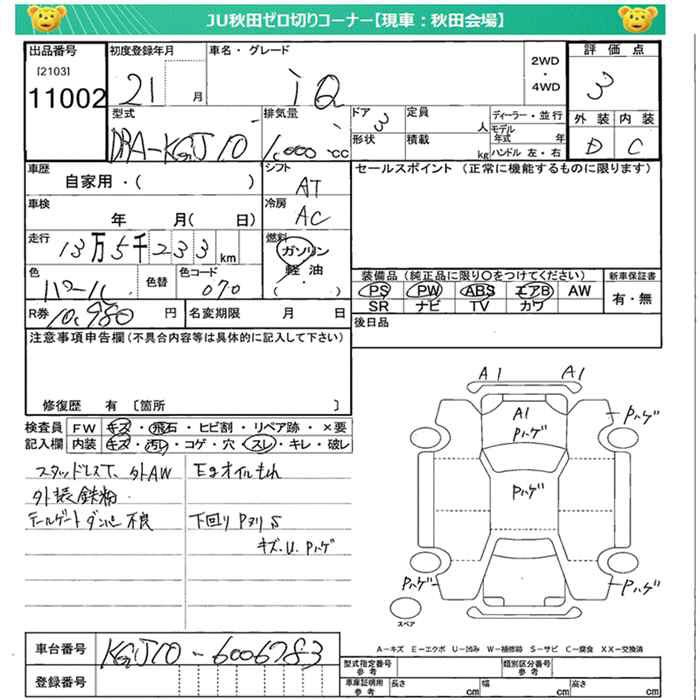 JU秋田ゼロ切りコーナー【現車：秋田会場】
出品番号
[2103]
11002
初度登録年月
21 月
車名・グレード
iQ
2WD
・
4WD
評価点
3
外装 内装
D C
型式
DBA-KGJ10
排気量
1,000 cc
ドア
3
定員
人
形状
積載
kg
ディーラー・並行
モデル年式 年
ハンドル 左・右
車歴
自家用・( )
シフト
AT
セールスポイント (正常に機能するものに限ります)
車検
年 月( 日)
冷房
AC
走行
13万5千233km
燃料
ガソリン
・
軽油
( )
色
パール
色替
色コード
070
装備品 (純正品に限り○をつけてください)
PS PW ABS エアB AW
SR ナビ TV カワ
新車保証書
有・無
R券
10,980 円
名変期限 月 日
後日品
注意事項申告欄 (不具合内容等は具体的に記入して下さい)
修復歴 有 〔箇所 〕
検査員 FW キズ・飛石・ヒビ割・リペア跡・×要
記入欄 内装 キズ・汚れ・コゲ・穴・スレ・キレ・破レ
スタッドレスT、外AW
外装鉄粉
テールゲートダンパー不良
Egオイルもれ
下回り Pヌリ S
キズ.U.Pハゲ
A1 A1
A1
Pハゲ
Pハゲ
Pハゲ
Pハゲ
Pハゲ
スペア
A－キズ E－エクボ U－凹み W－補修跡 S－サビ C－腐食 XX－交換済
車台番号
KGJ10-6006783
登録番号
型式指定番号
参考
類別区分番号
参考
車庫証明用
参考
長さ cm 幅 cm 高さ cm